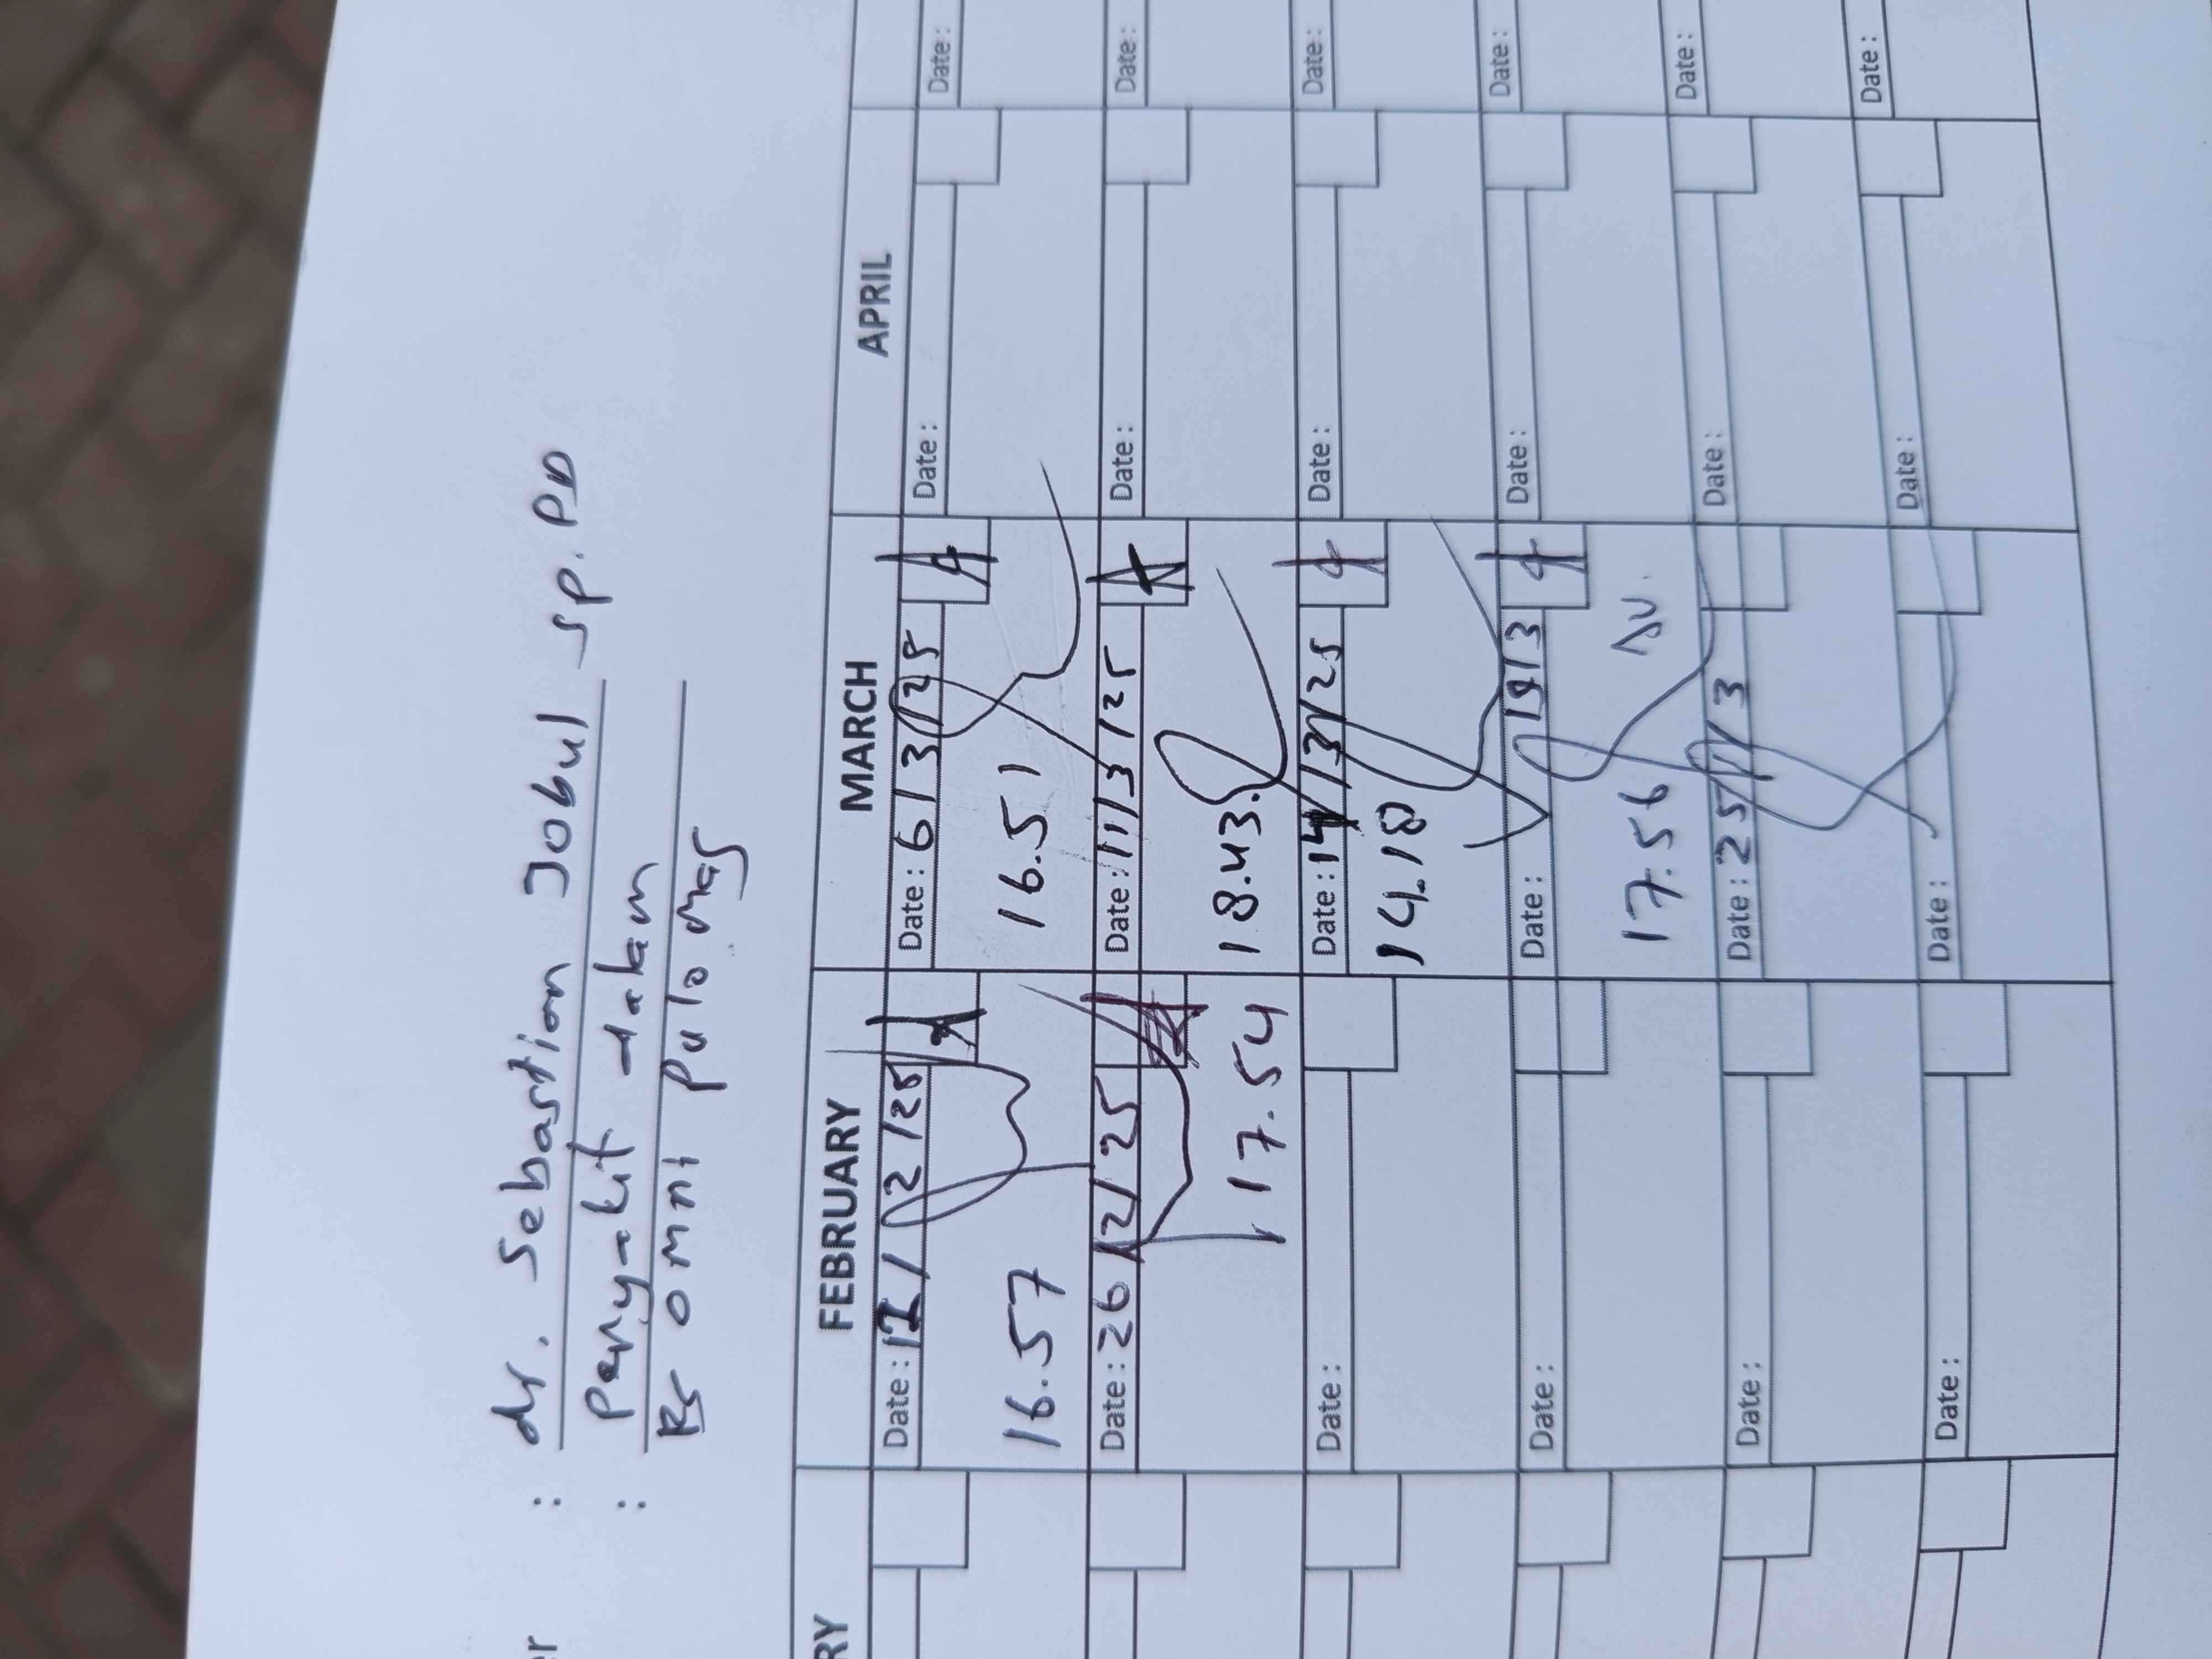 er : dr. Sebastian Jobul Sp.PD
: Penyakit dalam
RS omni Pulo mas
RY FEBRUARY MARCH APRIL
Date : 12/2/25 Date : 6/3/25 Date : Date :
16.57 16.51
Date : 26/2/25 Date : 11/3/25 Date : Date :
17.54 18.43
Date : Date : 14/3/25 Date : Date :
14.18
Date : Date : 19/3 Date : Date :
17.56
Date : Date : 25/3 Date : Date :
Date : Date : Date : Date :